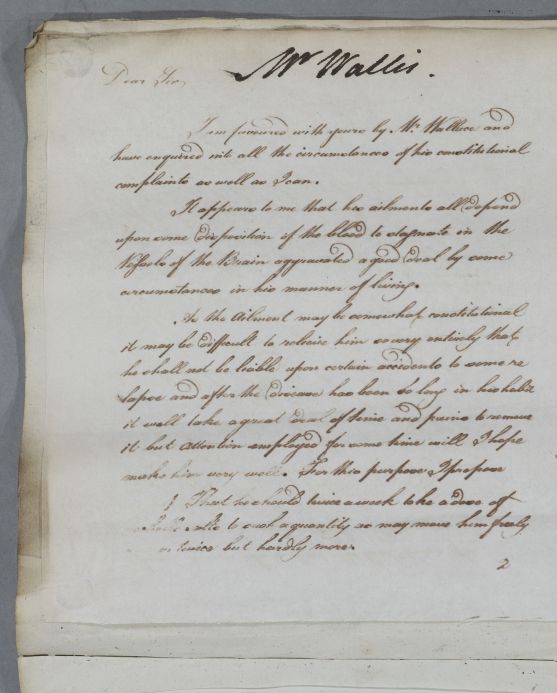 Mr Wallis.
Dear Sir,
I am favoured with yours by Mr. Wallace and
have enquired into all the circumstances of his constitutional
complaints as well as I can.
It appears to me that his ailments all depend
upon some disposition of the blood to stagnate in the
Vessels of the Brain aggravated a good deal by some
circumstances in his manner of living.
As the Ailment may be somewhat constitutional
it may be difficult to relieve him so very entirely that
he shall not be liable upon certain accidents to some re
lapse and after the disease has been so long in his habit
it will take a great deal of time and pains to remove
it but attention employed for some time will I hope
make him very well. For this purpose I propose
That he should twice a week take a dose of
to such a quantity as may move him freely
or twice but hardly more.
2